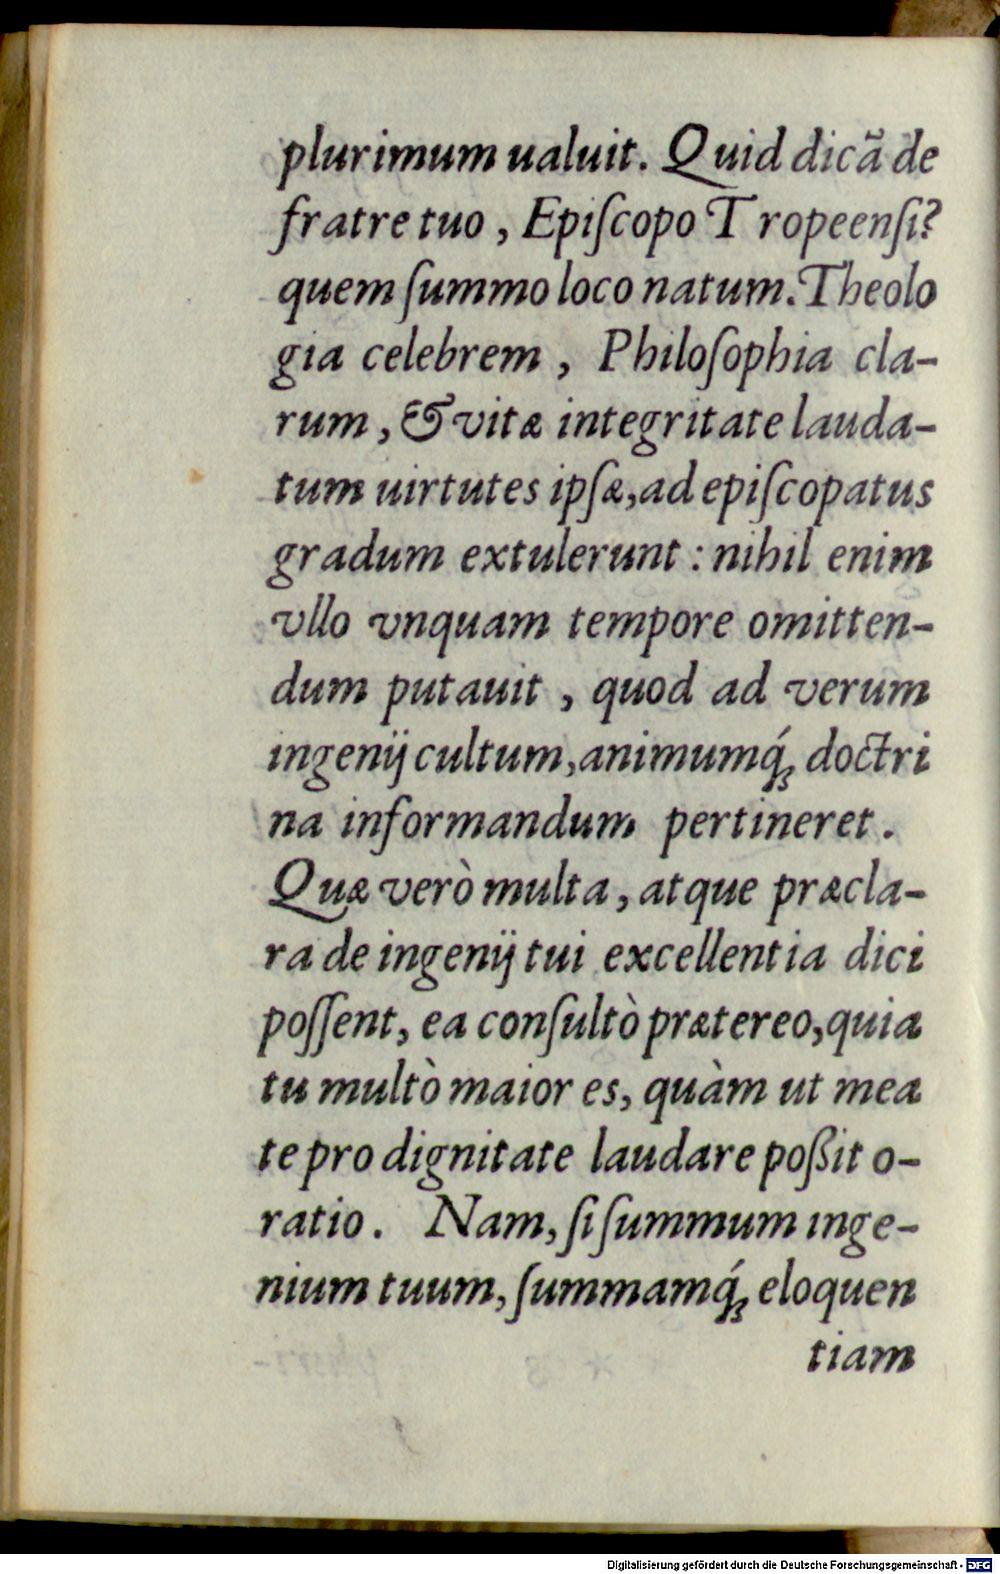 plurimum ualuit. Quid dicã de
fratre tuo, Epiſcopo Tropeenſi?
quem ſummo loco natum. Theolo
gia celebrem, Philoſophia cla-
rum, & vitæ integritate lauda-
tum uirtutes ipſæ, ad epiſcopatus
gradum extulerunt: nihil enim
vllo vnquam tempore omitten-
dum putauit, quod ad verum
ingenij cultum, animumq́; doctri
na informandum pertineret.
Quæ verò multa, atque præcla-
ra de ingenij tui excellentia dici
poſſent, ea conſultò prætereo, quia
tu multò maior es, quàm ut mea
te pro dignitate laudare poßit o-
ratio. Nam, ſi ſummum inge-
nium tuum, ſummamq́; eloquen
tiam
Digitalisierung gefördert durch die Deutsche Forschungsgemeinschaft - DFG